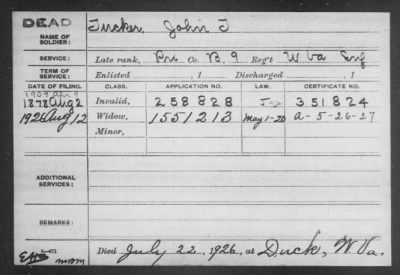 DEAD
NAME OF SOLDIER: Tucker, John T
SERVICE: Late rank, Pri Co. B, 9 Reg't W Va Inf
TERM OF SERVICE: Enlisted , 1 Discharged , 1
DATE OF FILING. CLASS. APPLICATION NO. LAW. CERTIFICATE NO.
1878 Aug 2 Invalid, 258828 351824
1926 Aug 12 Widow, 1551213 May 1-20 A-5-26-27
Minor,
ADDITIONAL SERVICES:
REMARKS:
Died July 22, 1926, at Duck, W Va.